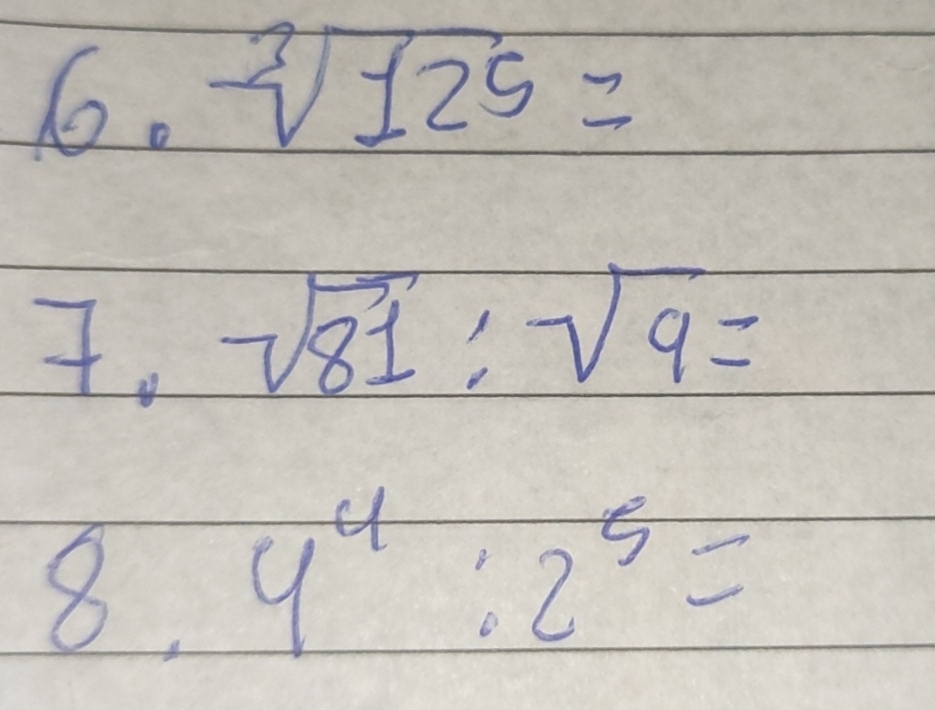 6. ∛125 =
7. √81 : √9 =
8. 4⁴ : 2⁵ =